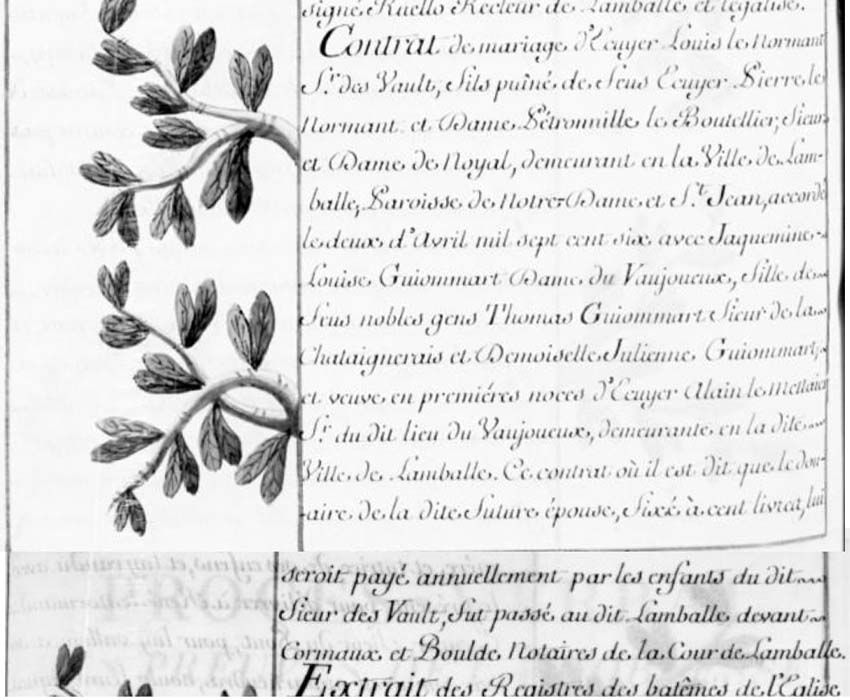 signé Ruello Recteur de Lamballe et légalisé.
Contrat de mariage d'Ecuyer Louis le Normant
Sr. des Vault, fils puîné de feus Ecuyer Pierre le
Normant et Dame Pétronnille le Boutellier, Sieur
et Dame de Noyal, demeurant en la Ville de Lam-
balle, Paroisse de Notre-Dame et St. Jean, accordé
le deux d'Avril mil sept cent six avec Jaquemine-
Louise Guiommart Dame du Vaujoueux, fille de
feus nobles gens Thomas Guiommart Sieur de la
Chataignerais et Demoiselle Julienne Guiommart,
et veuve en premiéres noces d'Ecuyer Alain le Mettaier
Sr. du dit lieu du Vaujoueux, demeurante en la dite
Ville de Lamballe. Ce contrat où il est dit que le dou-
-aire de la dite future épouse, fixé à cent livres, lui
seroit payé annuellement par les enfants du dit
Sieur des Vault, fut passé au dit Lamballe devant
Cornaux et Boulde Notaires de la Cour de Lamballe.
Extrait des Registres des batêmes de l'Eglise